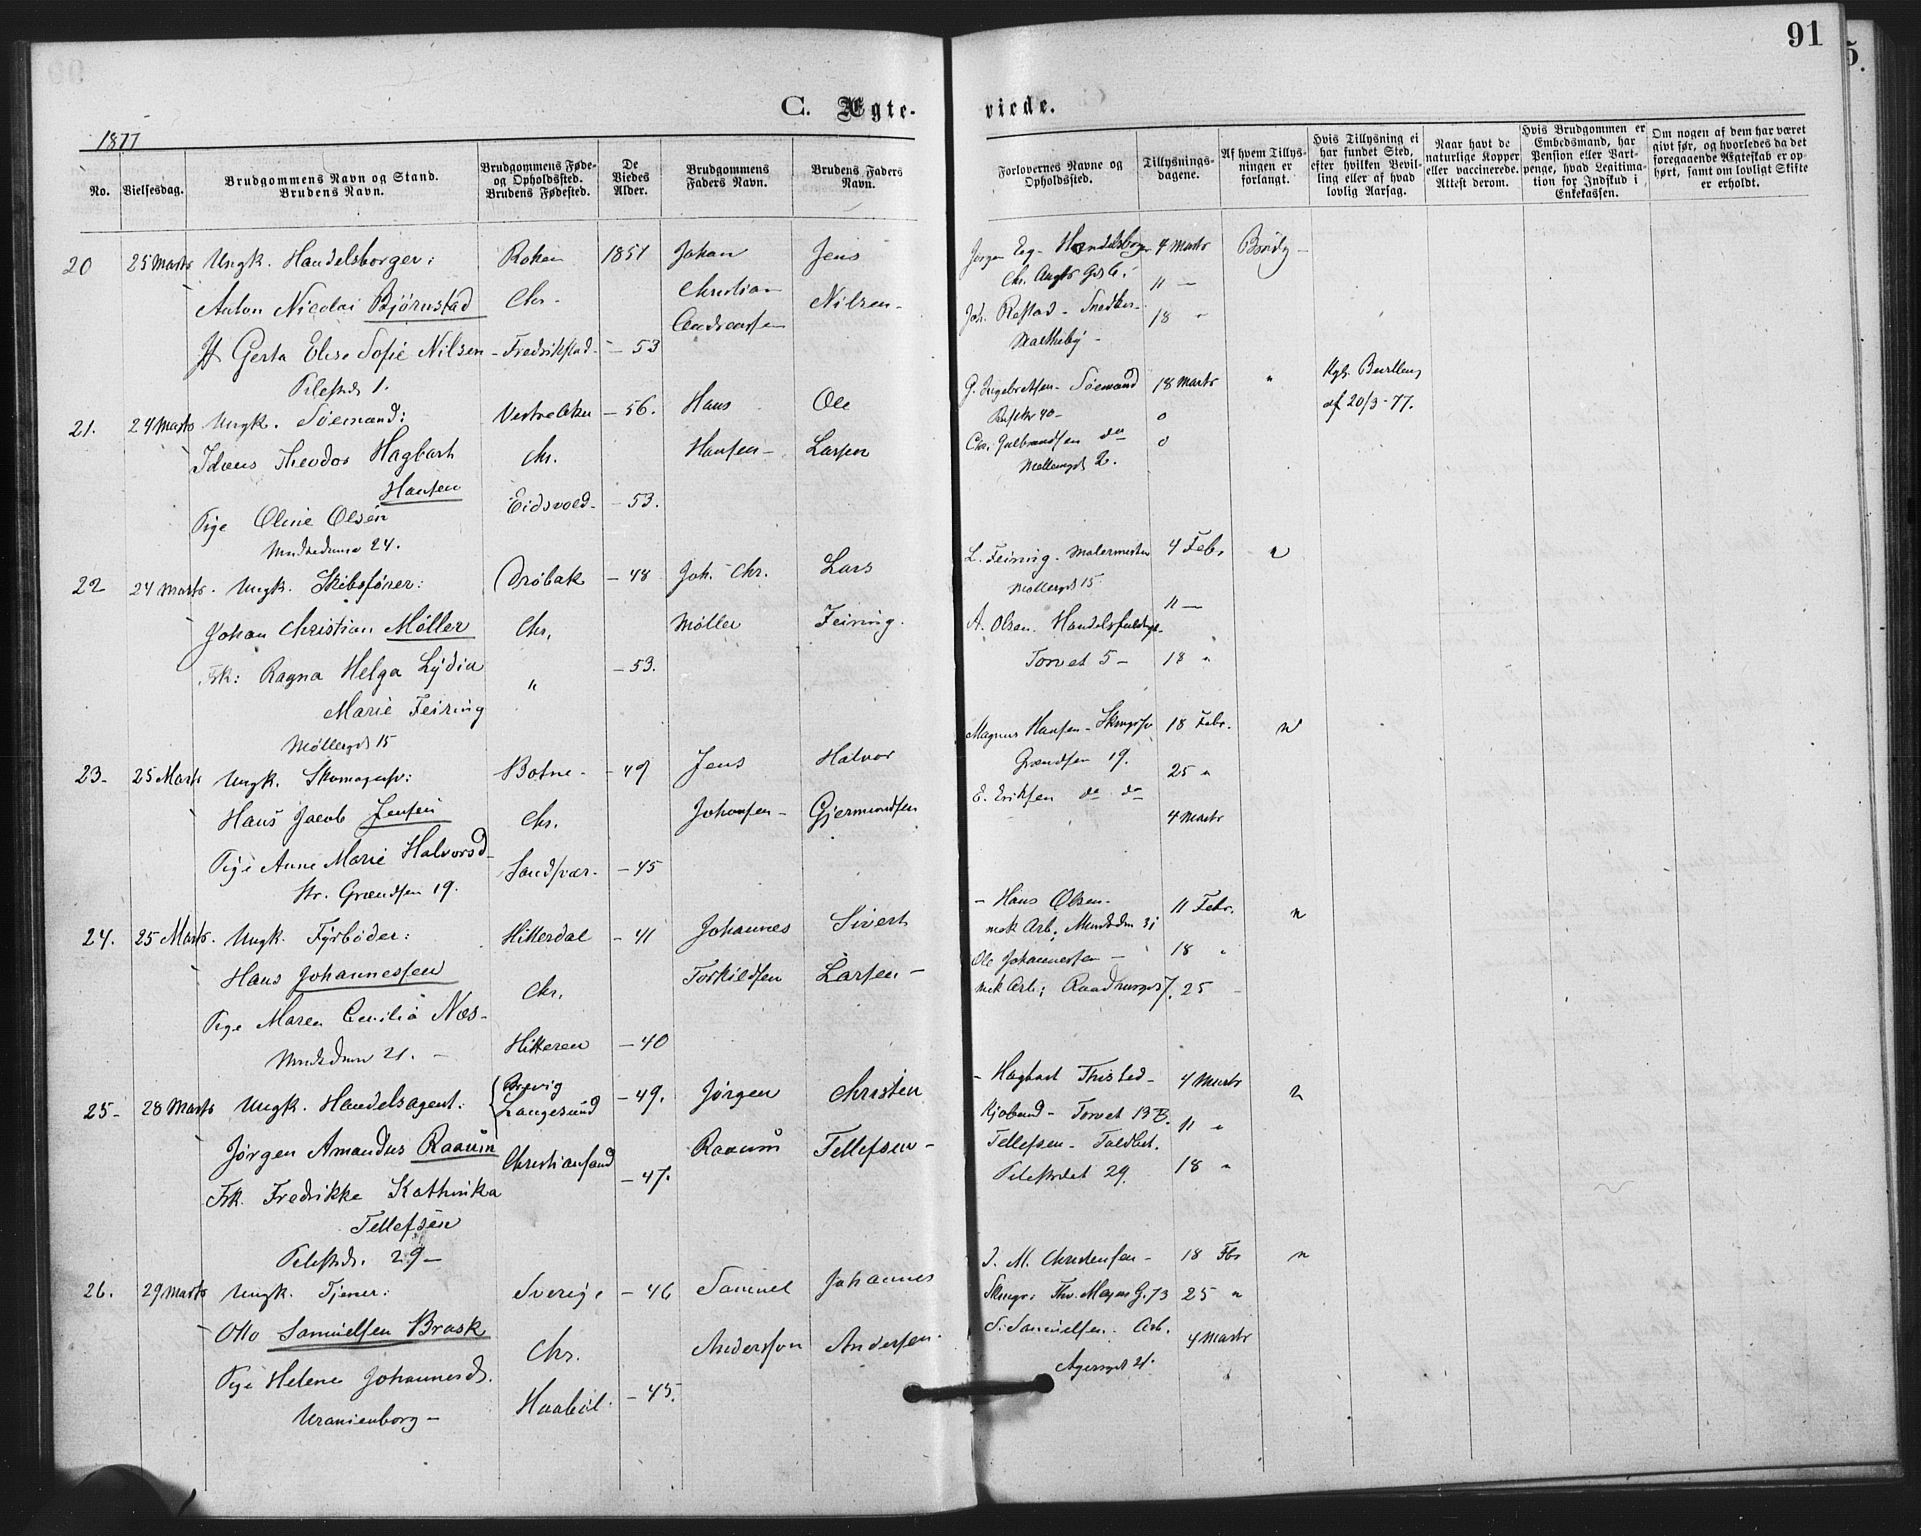 91
C. Ægte-
viede.
1877
No.
Vielsesdag.
Brudgommens Navn og Stand.
Brudens Navn.
Brudgommens Føde-
og Opholdssted.
Brudens Fødested.
De
Viedes
Alder.
Brudgommens
Faders Navn.
Brudens Faders
Navn.
Forlovernes Navne og
Opholdssted.
Tillysnings-
dagene.
Af hvem Tillys-
ningen er
forlangt.
Hvis Tillysning ei
har fundet Sted,
efter hvilken Bevil-
ling eller af hvad
lovlig Aarsag.
Naar havt de
naturlige Kopper
eller vaccinerede.
Attest derom.
Hvis Brudgommen er
Embedsmand, har
Pension eller Vart-
penge, hvad Legitima-
tion for Indskud i
Enkekassen.
Om nogen af dem har været
givt før, og hvorledes da det
foregaaende Ægteskab er op-
hørt, samt om lovligt Skifte
er erholdt.
20 25 Marts Ungk. Handelsborger: Røken 1851 Johan Jens
Anton Nicolai Bjørnstad Chr. Christian Nilsen
Gerta Elise Sofie Nilsen Fredrikstad - 53
Pilestrd. 1.
Jørgen Handelsborger 4 Marts
11 —
18 "
21. 24 Marts Ungk. Sømand: Vestre Aker - 56. Hans Ole
Theodor Hagbart Chr. Hansen - Larsen
Hansen
Pige Oline Olsen Eidsvold - 53.
24.
G. Ingebretsen - Sømand 18 Marts " Kgl. Bevilling
40 - 0 af 20/3 - 77.
Chr. Gulbrandsen do 0
Møllergd. 2.
22 24 Marts. Ungk. Skibsfører: Drøbak - 48 Joh. Chr. Lars
Johan Christian Møller Chr. Møller Feiring.
Frk: Ragna Helga Lydia " - 53.
Marie Feiring
Møllergd. 15
L. Feiring. Malermester 4 Febr. "
Møllergd. 15
11 —
A. Olsen. Handelsfuldmgt.
Torvet 5 - 18 "
23. 25 Marts Ungk. Skomagersv: Botne - 49 Jens Halvor
Hans Jacob Jensen Chr. Johansen - Gjermundsen
Pige Anne Marie Halvorsd. Sandsvær - 45
Str. Grændsen 19.
Magnus Hansen - Skmgrsv 18 Febr. "
Grændsen 19. 25 "
E. Eriksen do do
4 Marts
24. 25 Marts. Ungk. Fyrbøder: Hitterdal - 41 Johannes Sivert
Hans Johannessen Chr. Torkildsen Larsen -
Pige Maren Næs -
21. - Hitteren - 40
- Hans Olsen. 11 Febr. "
mek Arb;
Ole Johannessen - 18 "
mek Arb; Raadhusgd 7. 25 -
25 - 28 Marts Ungk. Handelsagent: Brevig - 49. Jørgen Christen
Langesund
Jørgen Amandus Raaum Christiansand Raaum Tellefsen -
Frk. Fredrikke Kathinka - 47.
Tellefsen
Pilestrd. 29 -
- Hagbart Thisted - 4 Marts "
Kjøbmd - Torvet 13 B. 11 "
Tellefsen - Toldbet.
Pilestrædet 29. 18 "
26. 29 Marts Ungk. Tjener: Sverige - 46 Samuel Johannes
Otto Samuelsen Brask Chr. Andersson Andersen.
Pige Helene Johannesd. Haabøl. - 45.
Uranienborg -
J. M. Christensen - 18 Fbr "
Skmgr: Thv. Meyers G. 73 25 "
S. Samuelsen. Arb. 4 Marts
Agersgd. 21.